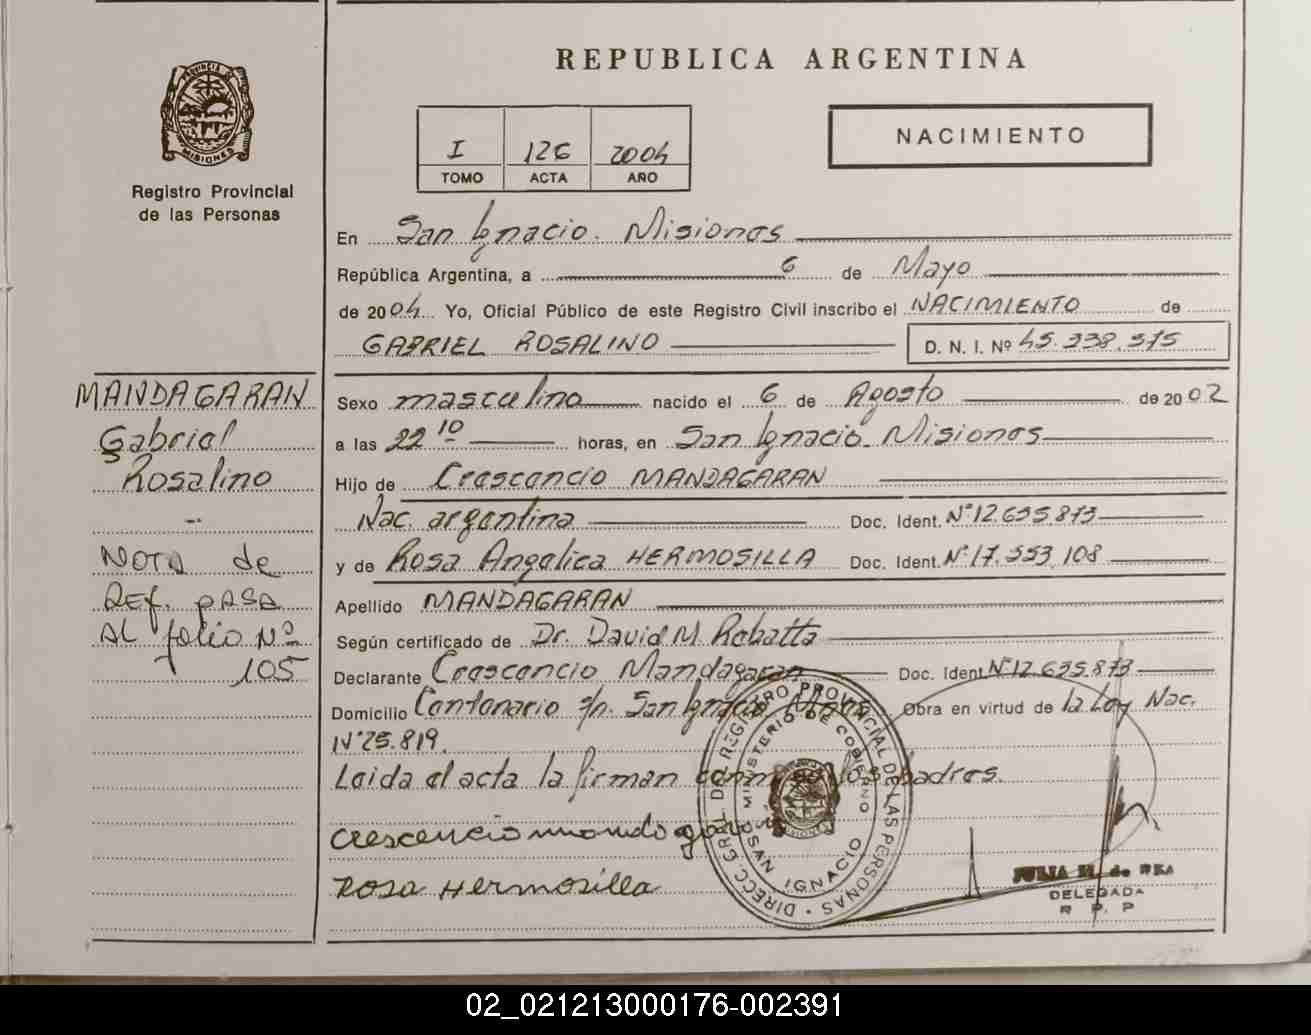 REPUBLICA ARGENTINA
PROVINCIA DE
MISIONES
Registro Provincial
de las Personas
I 126 2004
TOMO ACTA AÑO
NACIMIENTO
En San Ignacio. Misiones
República Argentina, a 6 de Mayo
de 2004 Yo, Oficial Público de este Registro Civil inscribo el NACIMIENTO de
GABRIEL ROSALINO D. N. I. Nº 45.338.575
MANDAGARAN
Gabriel
Rosalino
NOTA de
REf. pASA
AL folio Nº
105
Sexo masculino nacido el 6 de Agosto de 2002
a las 22 10 horas, en San Ignacio. Misiones
Hijo de Crescencio MANDAGARAN
Nac. argentina Doc. Ident. Nº12.635.873
y de Rosa Angelica HERMOSILLA Doc. Ident. Nº17.553.108
Apellido MANDAGARAN
Según certificado de Dr. David M Rebatta
Declarante Crescencio Mandagaran Doc. Ident Nº12.635.873
Domicilio Centenario s/n. San Ignacio Mnes Obra en virtud de la Ley Nac.
Nº25.819.
Leida el acta la firman conmigo los padres.
crescencio mandagaran
Rosa Hermosilla
DIRECC. GRAL. DEL REGISTRO PROVINCIAL DE LAS PERSONAS
MINISTERIO DE GOBIERNO
SAN IGNACIO
MISIONES
JULIA de REA
DELEGADA
R P. P
02_021213000176-002391